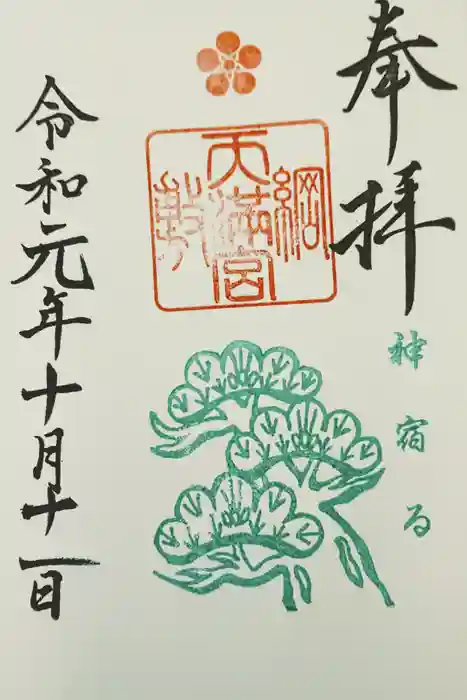 奉拝
神宿る
綱敷天満宮
令和元年十月十一日